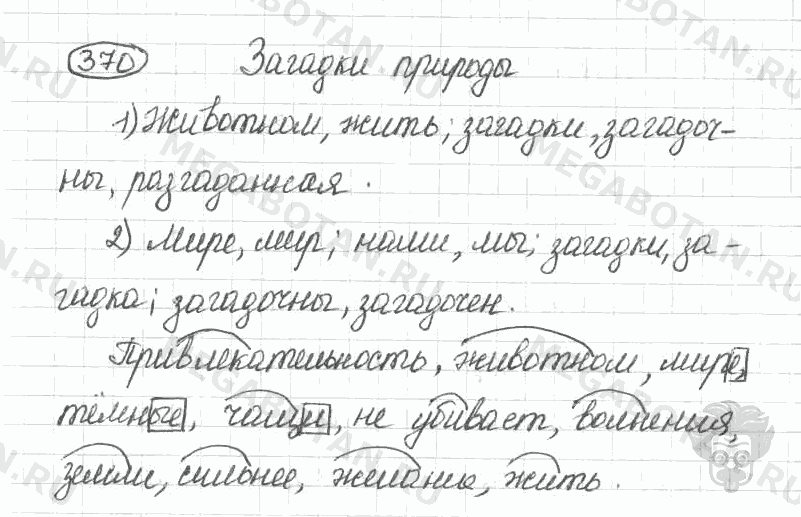 370 Загадки природы
1) Животном, жить; загадки, загадоч-
ны, разгаданная.
2) Мире, мир; нами, мы; загадки, за-
гадка; загадочны, загадочен.
Привлекательность, животном, мире,
тёмные, чащи, не убивает, волнения,
земли, сильнее, желание, жить.
MEGABOTAN.RU